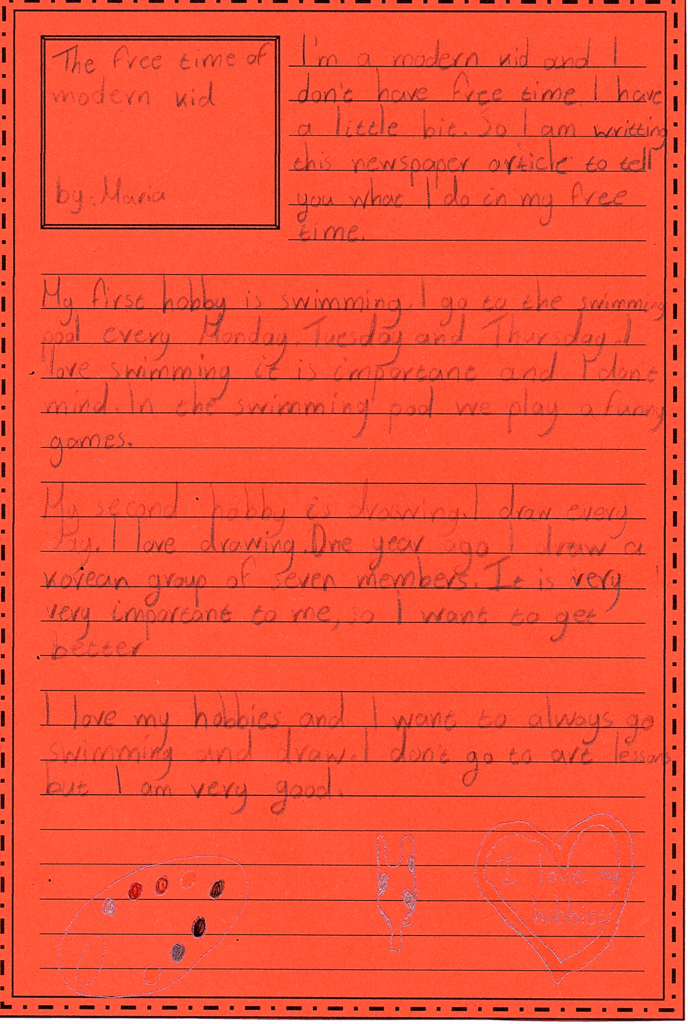 The free time of
modern kid
by. Maria
I'm a modern kid and I
don't have free time I have
a little bit. So I am writting
this newspaper article to tell
you what I do in my free
time.
My first hobby is swimming. I go to the swimming
pool every Monday, Tuesday and Thursday. I
love swimming it is important and I dont
mind. In the swimming pool we play a funny
games.
My second hobby is drawing. I draw every
day. I love drawing. One year ago I draw a
korean group of seven members. It is very
very important to me, so I want to get
better
I love my hobbies and I want to always go
swimming and draw. I don't go to art lessons
but I am very good.
I love my
hobbies